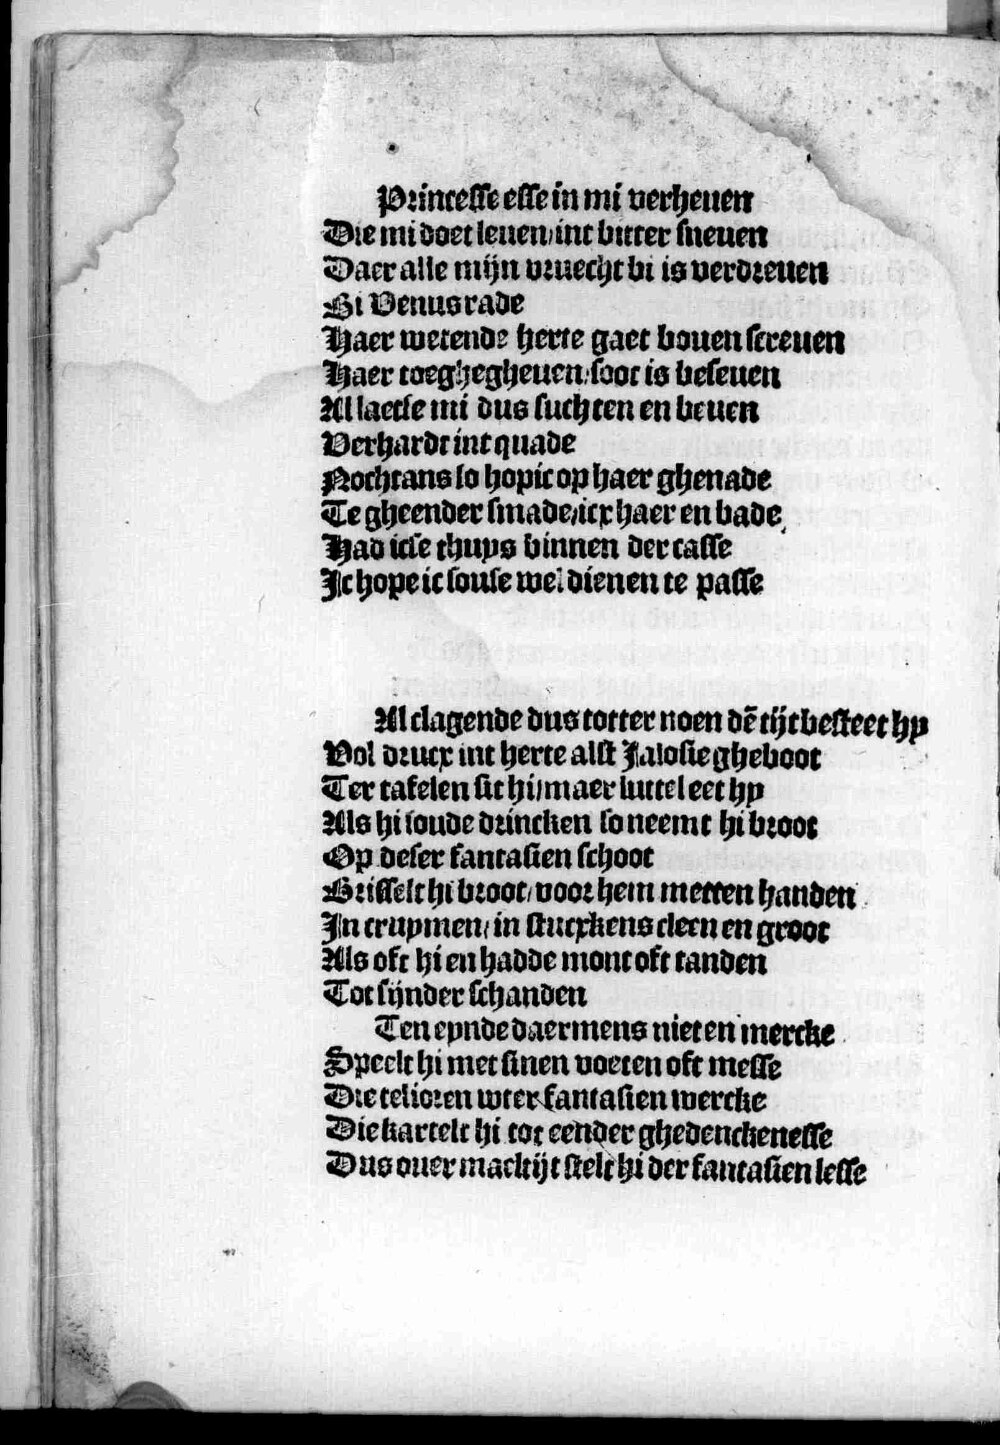 Princesse esse in mi verheuen
Die mi doet leuen/int bitter sneuen
Daer alle mijn vruecht bi is verdreuen
Bi Venus rade
Haer wetende herte gaet bouen screuen
Haer toeghegheuen/soot is beseuen
Al laetse mi dus suchten en beuen
Verhardt int quade
Nochtans so hopic op haer ghenade
Te gheender smade/icx haer en bade
Had icse thuys binnen der casse
Ic hope ic souse wel dienen te passe
Al clagende dus totter noen dē tijt besteet hy
Vol drucx int herte alst Jalosie gheboot
Ter tafelen sit hi/maer luttel eet hy
Als hi soude drincken so neemt hi broot
Op deser fantasien schoot
Brisselt hi broot/voor hem metten handen
In cruymen/in stucxkens cleen en groot
Als oft hi en hadde mont oft tanden
Tot sijnder schanden
Ten eynde daermens niet en mercke
Speelt hi met sinen voeten oft messe
Die telioren wter fantasien wercke
Die kartelt hi tot eender ghedenckenesse
Dus ouer mackijt stelt hi der fantasien lesse